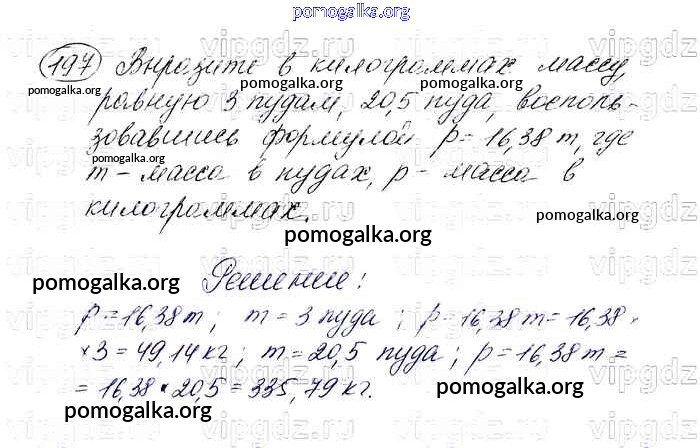 pomogalka.org
197 Выразите в килограммах массу,
pomogalka.org
равную 3 пудам, 20,5 пуда, восполь-
pomogalka.org
зовавшись формулой p=16,38 m, где
pomogalka.org
m - масса в пудах, p - масса в
килограммах.
pomogalka.org
pomogalka.org
Решение:
pomogalka.org
p=16,38m; m=3 пуда; p=16,38m=16,38×
×3=49,14 кг; m=20,5 пуда; p=16,38m=
=16,38×20,5=335,79 кг.
pomogalka.org
pomogalka.org
vipgdz.ru